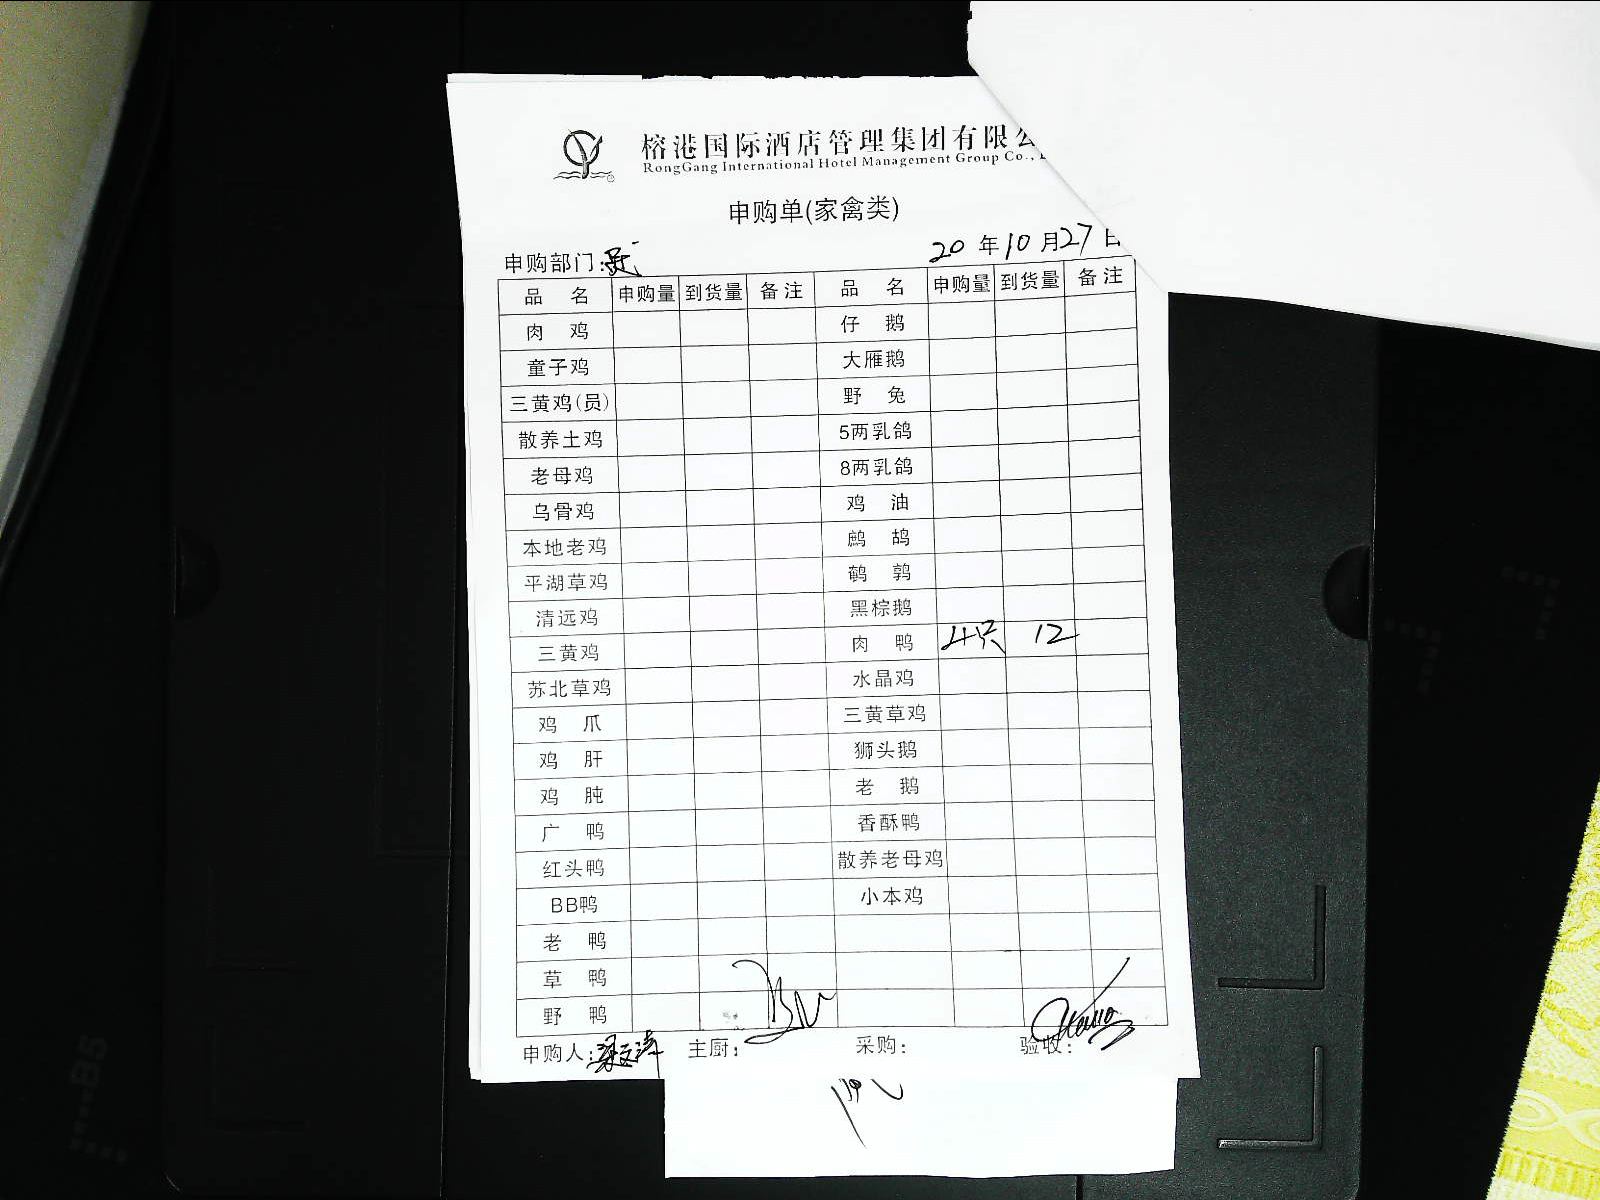 榕港国际酒店管理集团有限公
RongGang International Hotel Management Group Co.,
申购单(家禽类)
申购部门: 20 年 10 月 27 日
品 名 申购量 到货量 备注 品 名 申购量 到货量 备注
肉 鸡 仔 鹅
童子鸡 大雁鹅
三黄鸡(员) 野 兔
散养土鸡 5两乳鸽
老母鸡 8两乳鸽
乌骨鸡 鸡 油
本地老鸡 鹧 鸪
平湖草鸡 鹌 鹑
清远鸡 黑棕鹅
三黄鸡 肉 鸭 4只 12
苏北草鸡 水晶鸡
鸡 爪 三黄草鸡
鸡 肝 狮头鹅
鸡 肫 老 鹅
广 鸭 香酥鸭
红头鸭 散养老母鸡
BB鸭 小本鸡
老 鸭
草 鸭
野 鸭
申购人: 主厨: 采购: 验收: